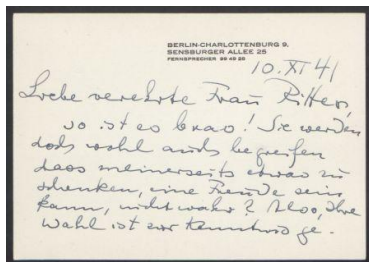 BERLIN-CHARLOTTENBURG 9,
SENSBURGER ALLEE 25
FERNSPRECHER 99 40 25
10. XI 41
Liebe verehrte Frau Ritter,
so ist es brav! Sie werden
doch wohl auch begreifen
dass meinerseits etwas zu
schenken, eine Freude sein
kann, nicht wahr? Also, Ihre
Wahl ist zur Kenntnis ge-